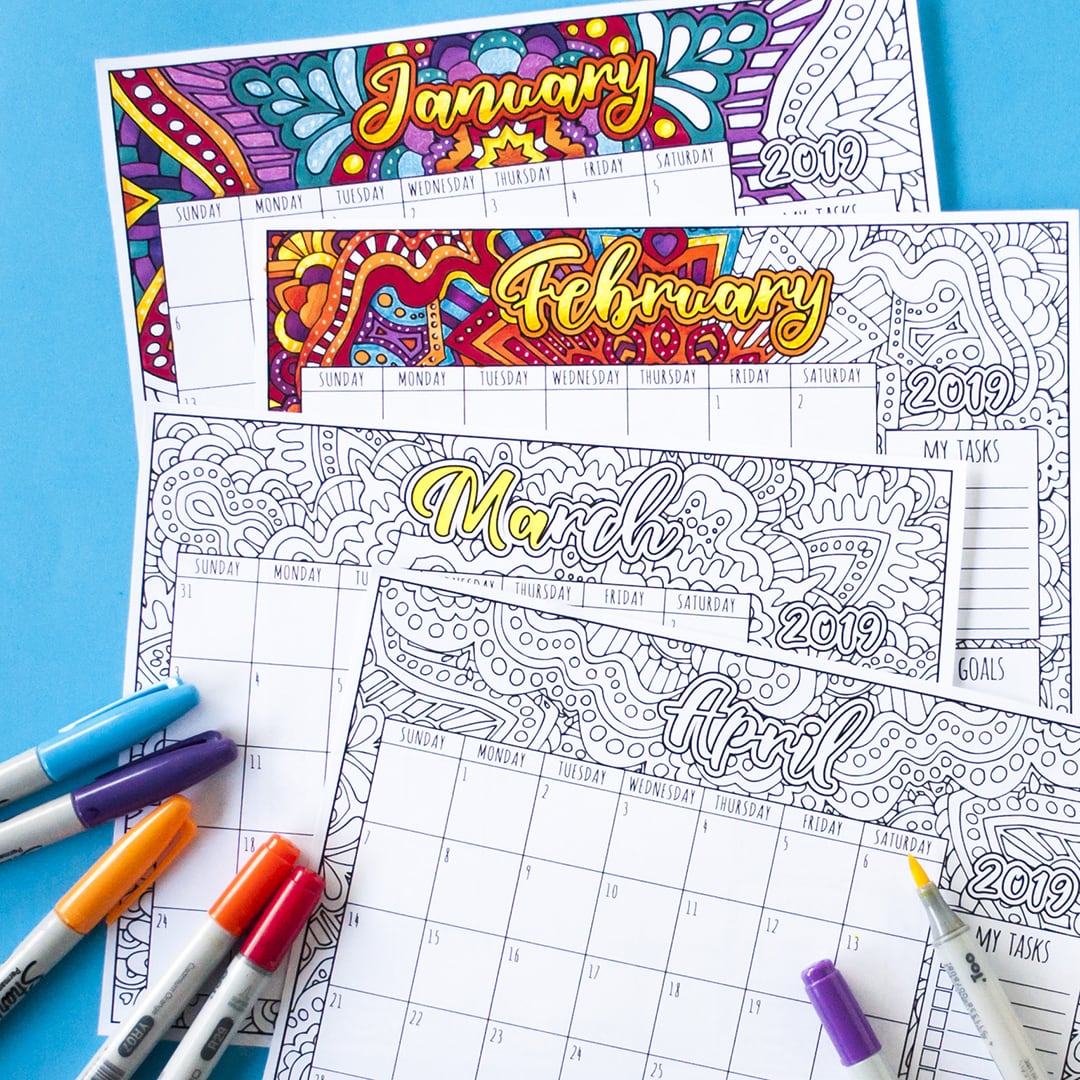 January
2019
SUNDAY MONDAY TUESDAY WEDNESDAY THURSDAY FRIDAY SATURDAY
MY TASKS
2 3 4 5
6
13
February
2019
SUNDAY MONDAY TUESDAY WEDNESDAY THURSDAY FRIDAY SATURDAY
1 2
MY TASKS
GOALS
March
2019
SUNDAY MONDAY TU THURSDAY FRIDAY SATURDAY
31
4 5
11
18
24
April
2019
SUNDAY MONDAY TUESDAY WEDNESDAY THURSDAY FRIDAY SATURDAY
1 2 3 4 5 6
7 8 9 10 11 12 13
14 15 16 17 18 19
21 22 23 24 25
28
MY TASKS
Sharpie
YR07